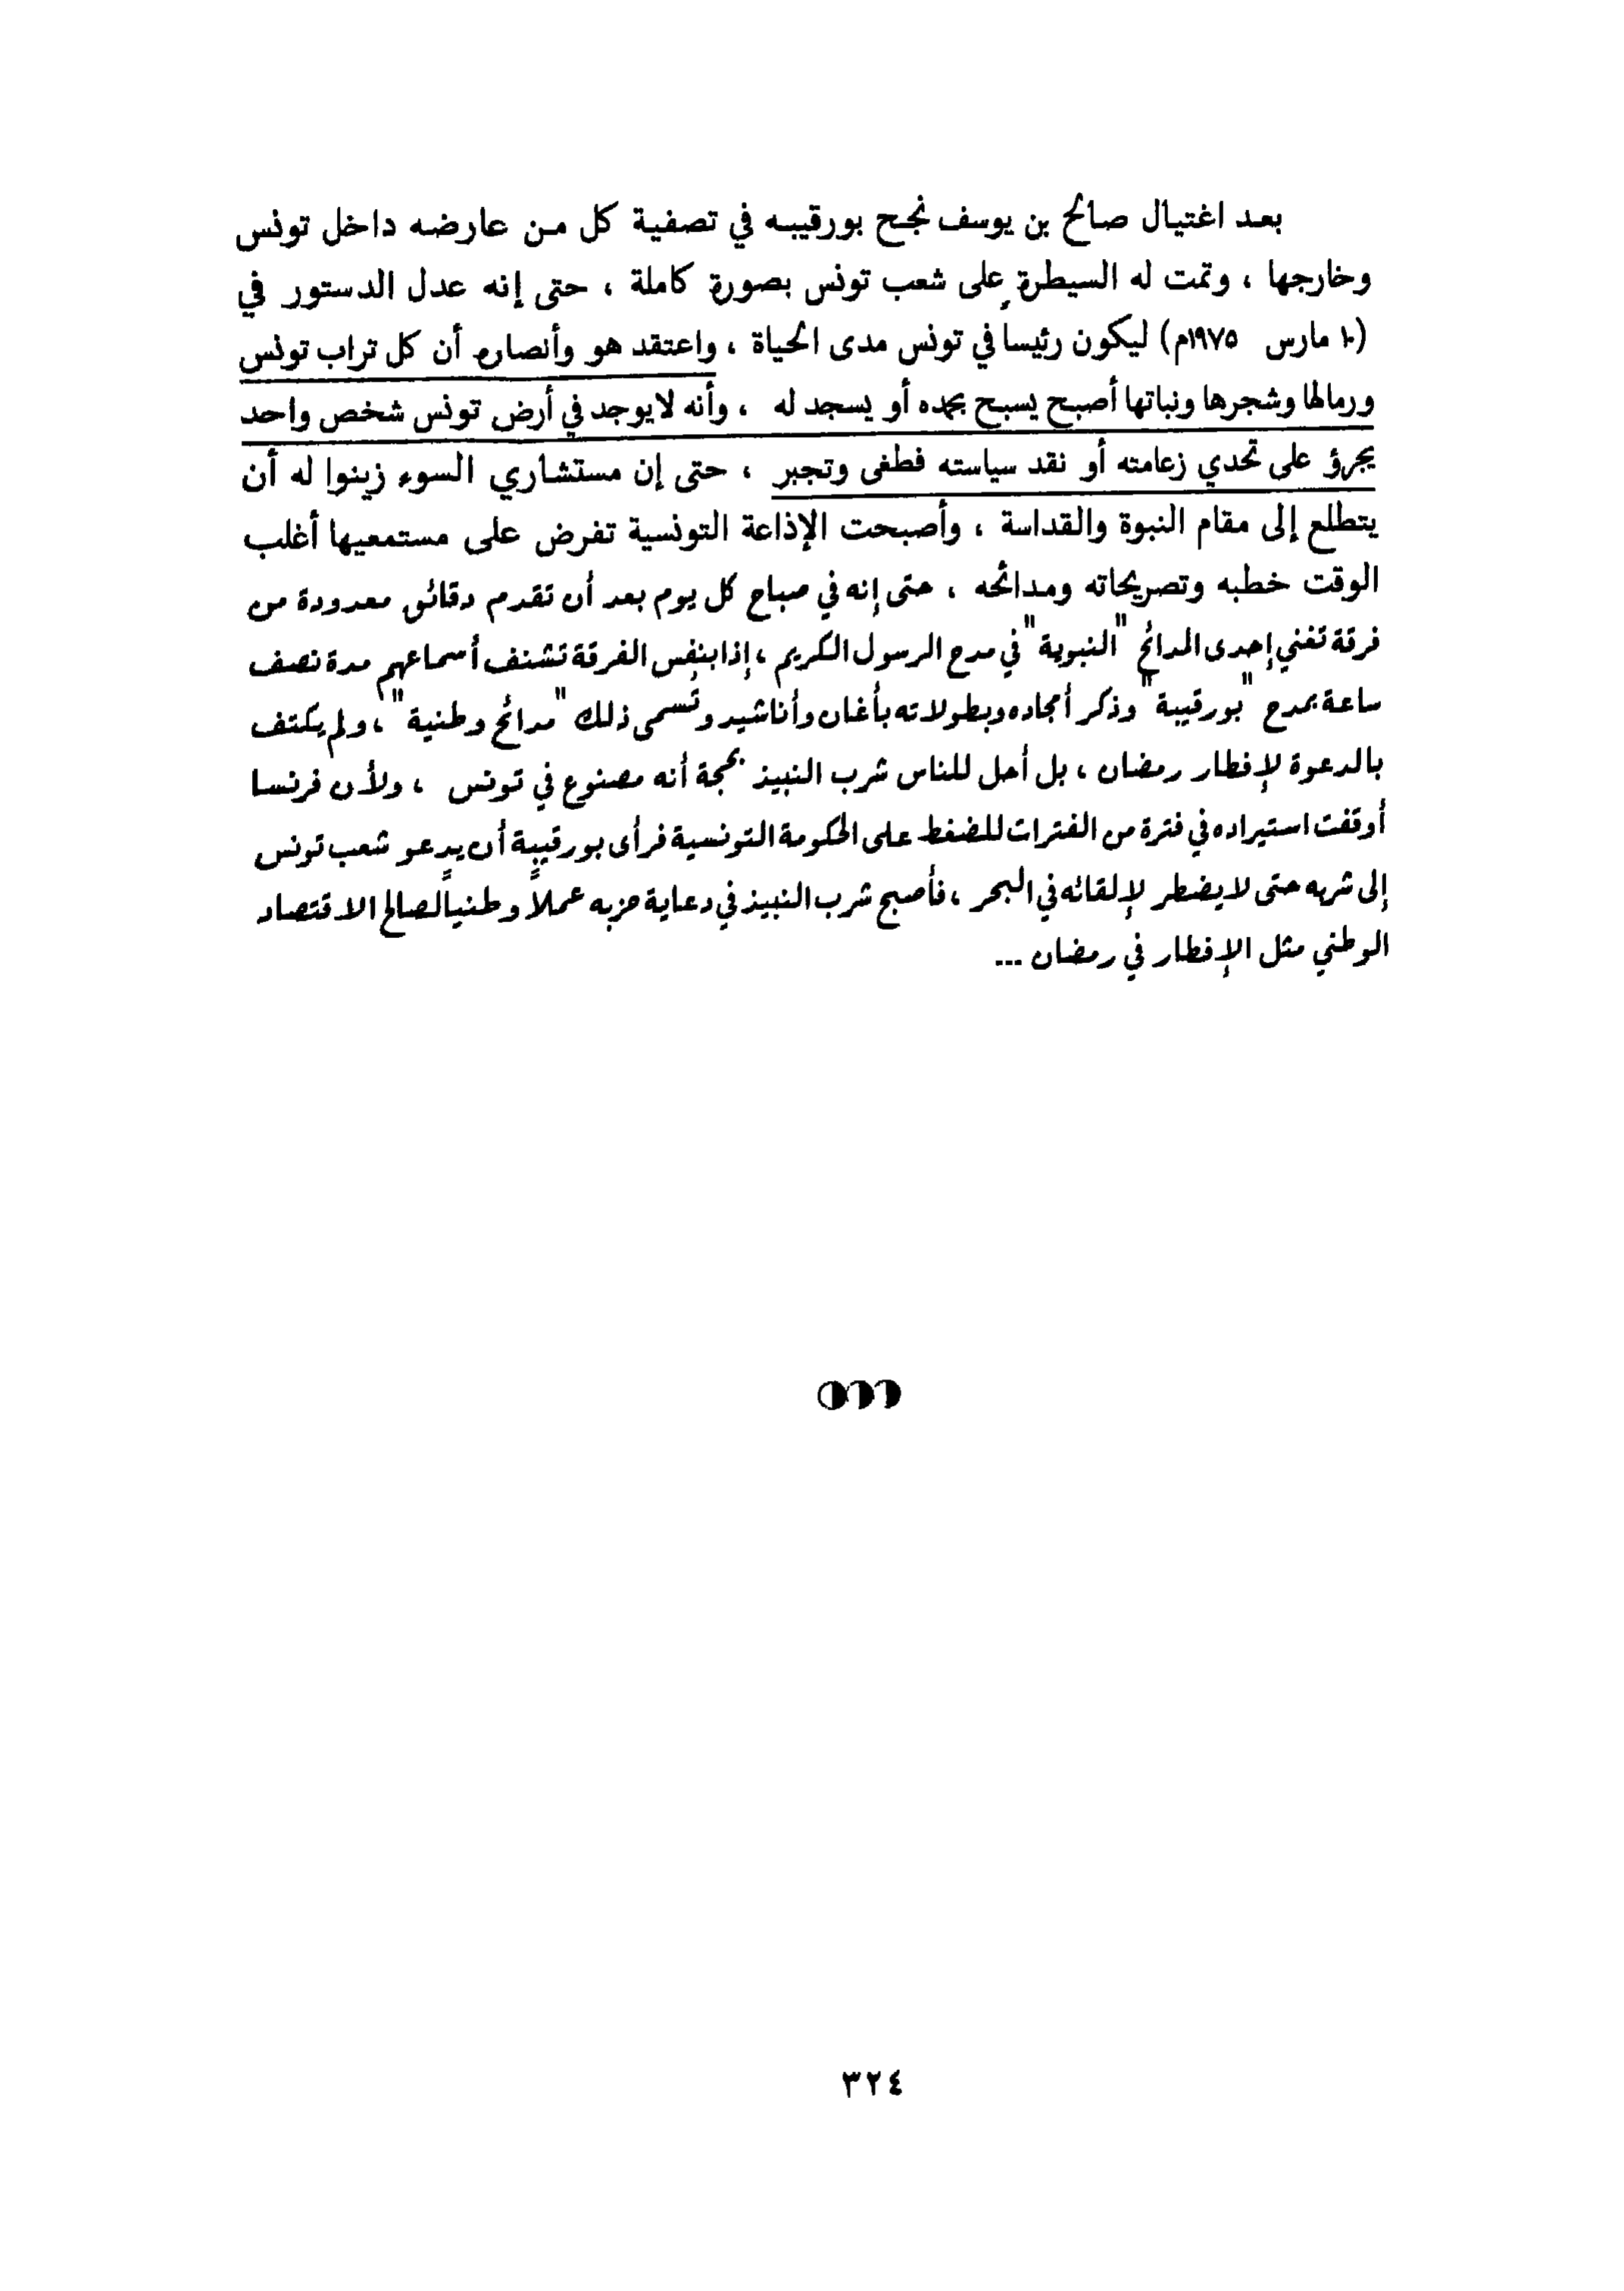 بعد اغتيال صالح بن يوسف نجح بورقيبه في تصفية كل من عارضه داخل تونس
وخارجها ، وتمت له السيطرة على شعب تونس بصورة كاملة ، حتى إنه عدل الدستور في
(١٠ مارس ١٩٧٥م) ليكون رئيسا في تونس مدى الحياة ، واعتقد هو وأنصاره أن كل تراب تونس
ورمالها وشجرها ونباتها أصبح يسبح بحمده أو يسجد له ، وأنه لايوجد في أرض تونس شخص واحد
يجرؤ على تحدي زعامته أو نقد سياسته فطغى وتجبر ، حتى إن مستشاري السوء زينوا له أن
يتطلع إلى مقام النبوة والقداسة ، وأصبحت الإذاعة التونسية تفرض على مستمعيها أغلب
الوقت خطبه وتصريحاته ومدائحه ، حتى إنه في صباح كل يوم بعد أن تقدم دقائق معدودة من
فرقة تغني إحدى المدائح "النبوية" في مدح الرسول الكريم ، إذا بنفس الفرقة تشنف أسماعهم مدة نصف
ساعة بمدح "بورقيبة" وذكر أمجاده وبطولاته بأغان وأناشيد وتسمى ذلك "مدائح وطنية" ، ولم يكتف
بالدعوة لإفطار رمضان ، بل أحل للناس شرب النبيذ بحجة أنه مصنوع في تونس ، ولأن فرنسا
أوقفت استيراده في فترة من الفترات للضغط على الحكومة التونسية فرأى بورقيبة أن يدعو شعب تونس
إلى شربه حتى لا يضطر لإلقائه في البحر ، فأصبح شرب النبيذ في دعاية حزبه عملاً وطنياً لصالح الاقتصاد
الوطني مثل الإفطار في رمضان ...
٣٢٤